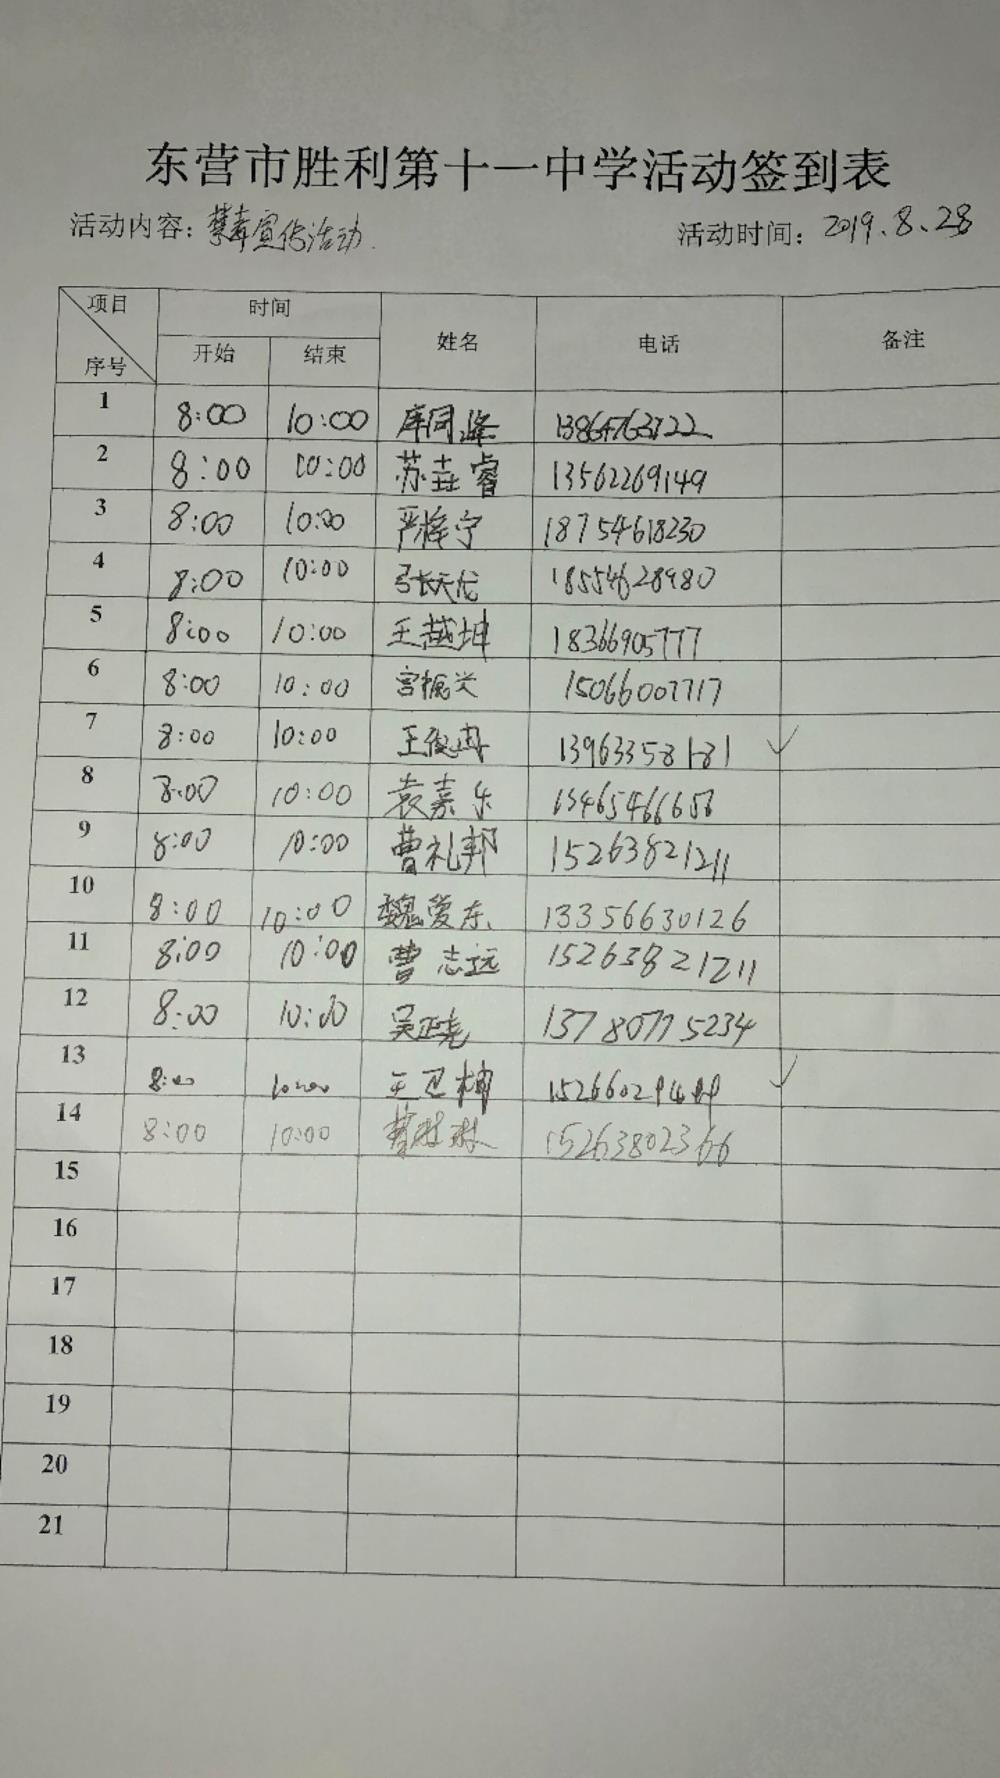 东营市胜利第十一中学活动签到表
活动内容：禁毒宣传活动. 活动时间：2019.8.28
项目 序号 时间 姓名 电话 备注
开始 结束
1 8:00 10:00 库同峰
2 8:00 10:00 苏垚睿 13562269149
3 8:00 10:00 严梓宁 18754618230
4 8:00 10:00 张天龙 18554628980
5 8:00 10:00 王越坤 18366905777
6 8:00 10:00 宫振兴 15066007717
7 8:00 10:00 王俊冉 13963358181 ✓
8 8:00 10:00 袁嘉乐 13465466656
9 8:00 10:00 曹礼邦 15263821211
10 8:00 10:00 魏爱东 13356630126
11 8:00 10:00 曹志远 15263821211
12 8:00 10:00 吴正尧 13780775234
13 8:00 10:00 王卫楠 ✓
14 8:00 10:00 15263802366
15
16
17
18
19
20
21